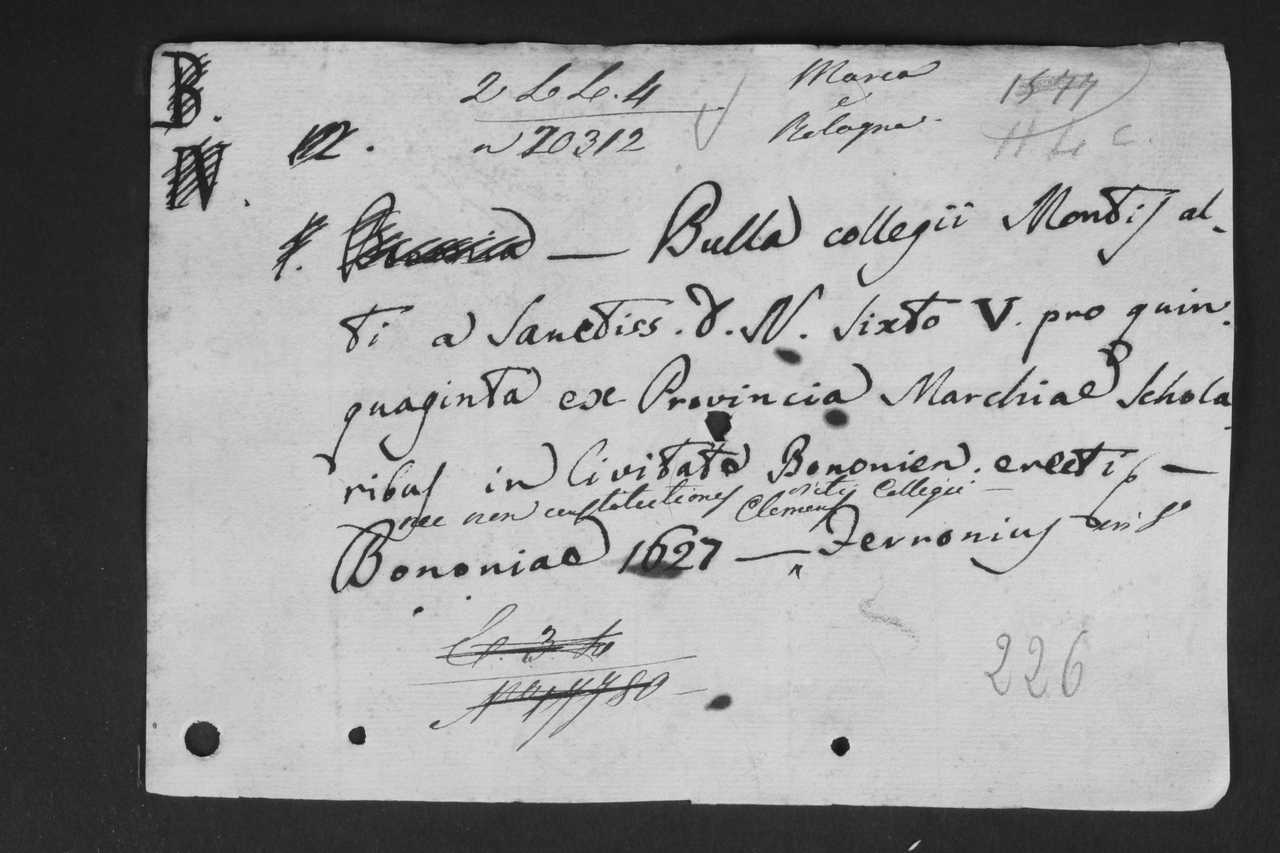 B.
N.
12.
2 LL. 4
n 20312
Marca
e
Bologna
1577
4 L c.
f. Bononia — Bulla collegii Montis al-
ti a Sanctiss. D. N. Sixto V. pro quin-
quaginta ex Provincia Marchiae Schola-
ribus in Civitate Bononien. erecti —
nec non constitutiones ejusdem Collegii —
Bononiae 1627 — Ferronius in 8°
226